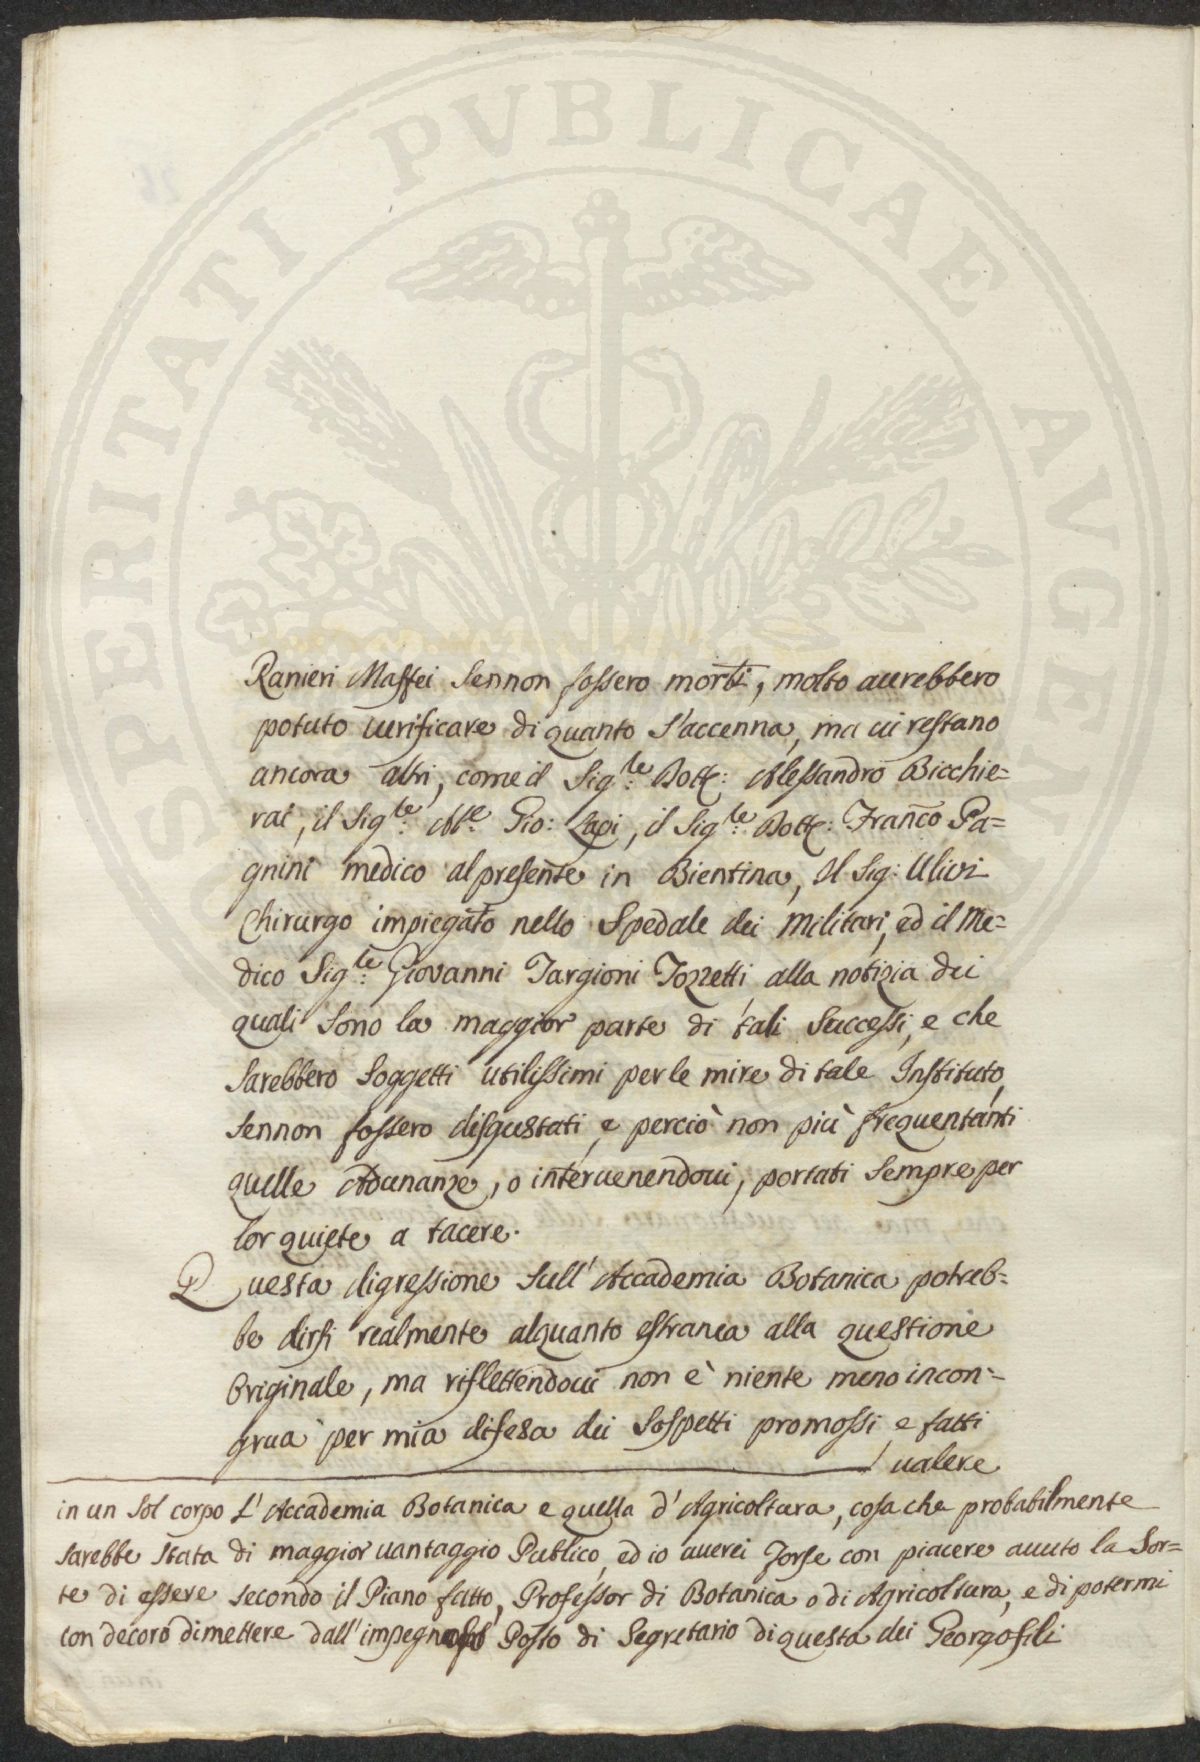 PROSPERITATI PUBLICAE AUGENDAE
Ranieri Maffei sennon fossero morti, molto averebbero
potuto verificare di quanto s'accenna, ma vi restano
ancora altri, come il Sig.re Dott: Alessandro Bicchie=
rai, il Sig.re Ab.e Gio: Lapi, il Sig.re Dott: Franco Pa=
gnini medico al presente in Bientina, il Sig: Ulivi
Chirurgo impiegato nello Spedale dei Militari, ed il Me=
dico Sig.re Giovanni Targioni Tozzetti alla notizia dei
quali sono la maggior parte di tali successi, e che
sarebbero soggetti utilissimi per le mire di tale Instituto,
sennon fossero disgustati, e perciò non più frequentanti
quelle Adunanze, o intervenendovi, portati sempre per
lor quiete a tacere.
Questa digressione sull'Accademia Botanica potreb=
be dirsi realmente alquanto estranea alla questione
Originale, ma riflettendovi non è niente meno incon=
grua per mia difesa dei sospetti promossi, e fatti
valere
in un sol corpo L'Accademia Botanica e quella d'Agricoltura, cosa che probabilmente
sarebbe stata di maggior vantaggio Publico, ed io averei forse con piacere avuto la Sor=
te di essere secondo il Piano fatto, Professor di Botanica o di Agricoltura, e di potermi
con decoro dimettere dall' Posto di Segretario di questa dei Georgofili